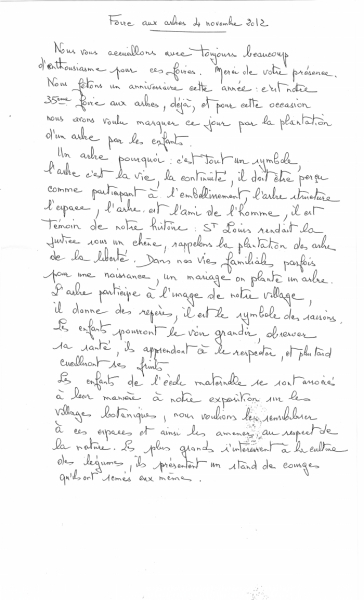 Foire aux arbres 4 novembre 2012
Nous vous accueillons avec toujours beaucoup
d'enthousiasme pour ces foires. Merci de votre présence.
Nous fêtons un anniversaire cette année : c'est notre
35ème foire aux arbres, déjà, et pour cette occasion
nous avons voulu marquer ce jour par la plantation
d'un arbre par les enfants.
Un arbre pourquoi : c'est tout un symbole,
l'arbre c'est la vie, la continuité, il doit être perçu
comme participant à l'embellissement l'arbre structure
l'espace, l'arbre est l'ami de l'homme, il est
témoin de notre histoire. St Louis rendait la
justice sous un chêne, rappelons la plantation des arbres
de la liberté. Dans nos vies familiales, parfois
pour une naissance, un mariage on plante un arbre.
L'arbre participe à l'image de notre village,
il donne des repères, il est le symbole des saisons.
Les enfants pourront le voir grandir, observer
sa santé, ils apprendont à le respecter, et plus tard
cueilleront ses fruits.
Les enfants de l'école maternelle se sont associés
à leur manière à notre exposition sur les
villages botaniques, nous voulions les sensibiliser
à ces espaces et ainsi les amener au respect de
la nature. Les plus grands s'intéressent à la culture
des légumes, ils présentent un stand de courges
qu'ils ont semés eux même.